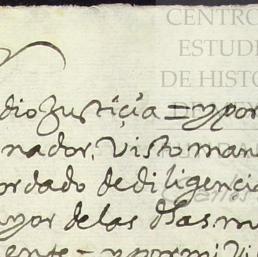 CENTRO
ESTUDI
DE HISTO
dio Justiçia = y por
nador, Visto man
ordado de diligencia
ayor de las dhas m
ente = y por mi Vi